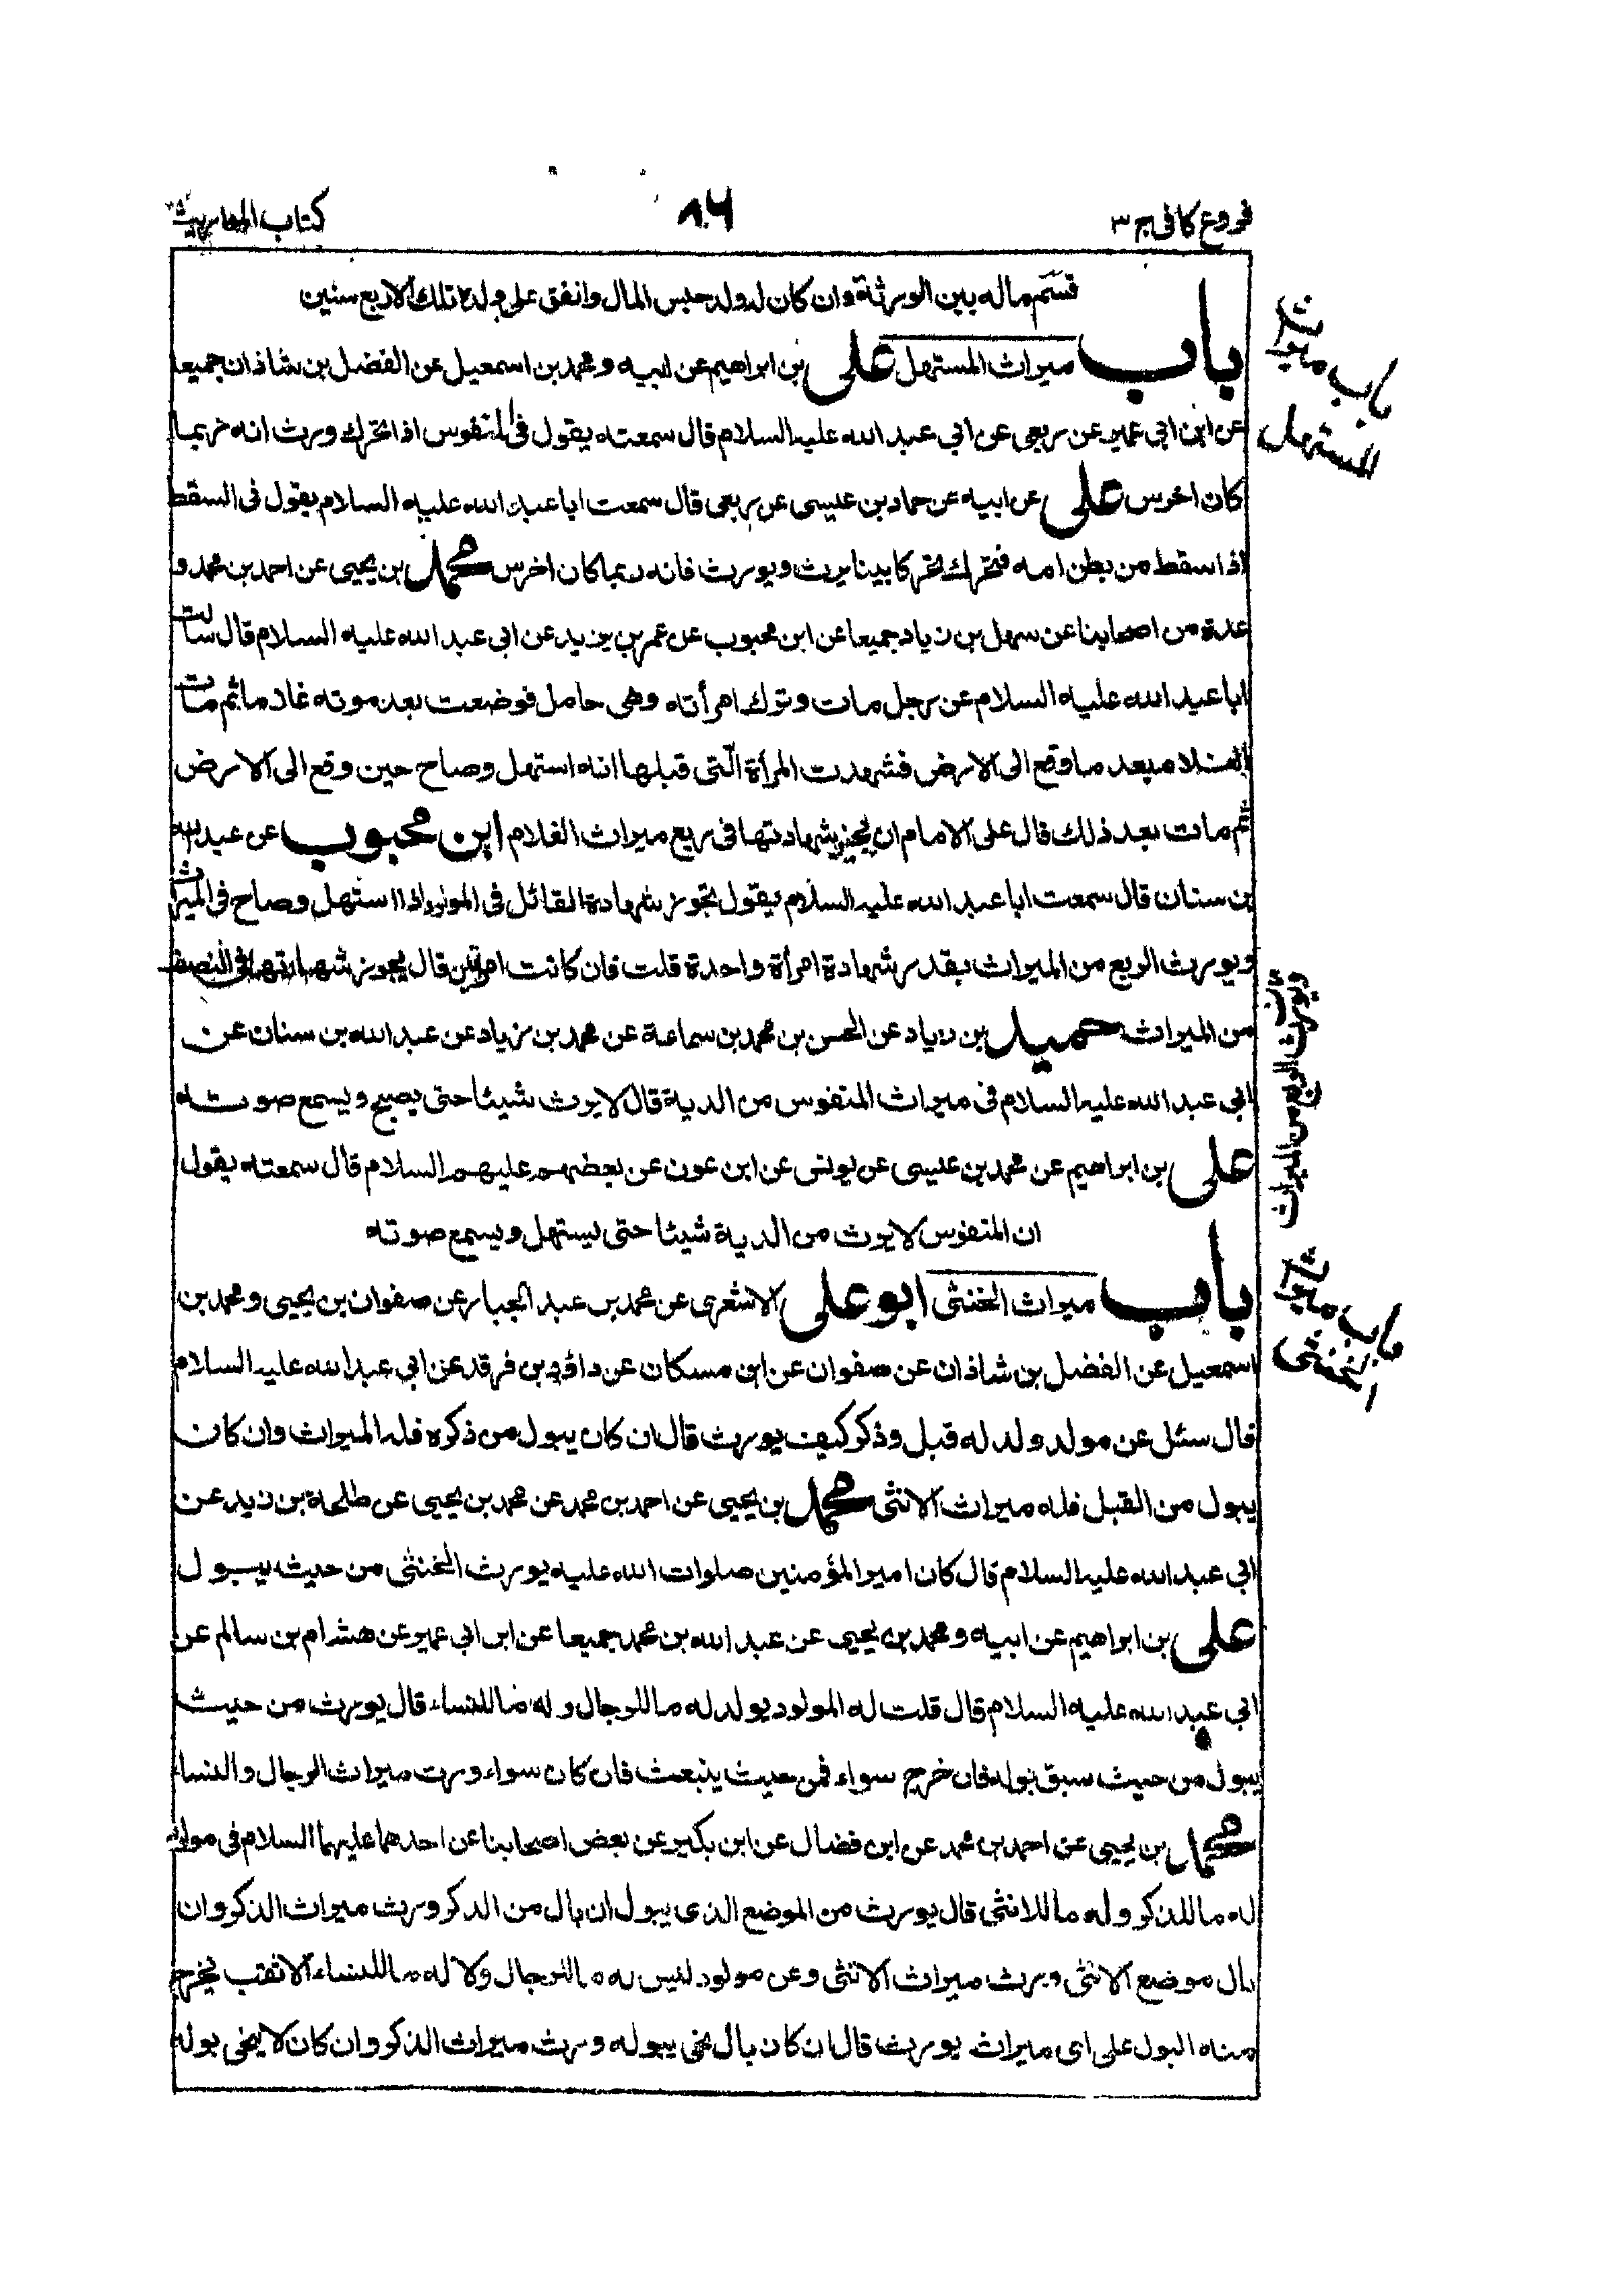 فروع كافى ج ٣
٨٠٦
كتاب المواريث
قسم ماله بين الورثة وان كان له ولد حبس المال وانفق على ولده تلك الاربع سنين
باب ميراث المستهل على بن ابراهيم عن ابيه ومحمد بن اسمعيل عن الفضل بن شاذان جميعا
عن ابن ابى عمير عن ربعى عن ابى عبد الله عليه السلام قال سمعته يقول فى المنفوس اذا تحرك ورث انه ربما
كان اخرس على عن ابيه عن حماد بن عيسى عن ربعى قال سمعت ابا عبد الله عليه السلام يقول فى السقط
اذا سقط من بطن امه فتحرك تحركا بينا يرث ويورث فانه ربما كان اخرس محمد بن يحيى عن احمد بن محمد و
عدة من اصحابنا عن سهل بن زياد جميعا عن ابن محبوب عن عمر بن يزيد عن ابى عبد الله عليه السلام قال سالت
ابا عبد الله عليه السلام عن رجل مات وترك امرأته وهى حامل فوضعت بعد موته غلاما ثم مات
الغلام بعد ما وقع الى الارض فشهدت المرأة الّتى قبلها انه استهل وصاح حين وقع الى الارض
ثم مات بعد ذلك قال على الامام ان يجيز شهادتها فى ربع ميراث الغلام ابن محبوب عن عبد الله
بن سنان قال سمعت ابا عبد الله عليه السلام يقول تجوز شهادة القائل فى المولود اذا استهل وصاح فى الميراث
ويورث الربع من الميراث بقدر شهادة امرأة واحدة قلت فان كانت امرأتين قال يجوز شهادتهما فى النصف
من الميراث حميد بن زياد عن الحسن بن محمد بن سماعة عن محمد بن زياد عن عبد الله بن سنان عن
ابى عبد الله عليه السلام فى ميراث المنفوس من الدية قال لا يرث شيئا حتى يصيح ويسمع صوته
على بن ابراهيم عن محمد بن عيسى عن يونس عن ابن عون عن بعضهم عليهم السلام قال سمعته يقول
ان المنفوس لا يرث من الدية شيئا حتى يستهل ويسمع صوته
باب ميراث الخنثى ابو على الاشعرى عن محمد بن عبد الجبار عن صفوان بن يحيى ومحمد بن
اسمعيل عن الفضل بن شاذان عن صفوان عن ابن مسكان عن داؤد بن فرقد عن ابى عبد الله عليه السلام
قال سئل عن مولد ولد له قبل وذكر كيف يورث قال ان كان يبول من ذكره فله الميراث وان كان
يبول من القبل فله ميراث الانثى محمد بن يحيى عن احمد بن محمد عن محمد بن يحيى عن طلحة بن زيد عن
ابى عبد الله عليه السلام قال كان امير المؤمنين صلوات الله عليه يورث الخنثى من حيث يبول
على بن ابراهيم عن ابيه ومحمد بن يحيى عن عبد الله بن محمد جميعا عن ابن ابى عمير عن هشام بن سالم عن
ابى عبد الله عليه السلام قال قلت له المولود يولد له ما للرجال وله ما للنساء قال يورث من حيث
يبول من حيث سبق بوله فان خرج سواء فمن حيث ينبعث فان كان سواء ورث ميراث الرجال والنساء
محمد بن يحيى عن احمد بن محمد عن ابن فضال عن ابن بكير عن بعض اصحابنا عن احدهما عليهما السلام فى مولود
له ما للذكر وله ما للانثى قال يورث من الموضع الذى يبول ان بال من الذكر ورث ميراث الذكر وان
بال موضع الانثى ورث ميراث الانثى وعن مولود ليس له ما للرجال ولا له ما للنساء الا ثقب يخرج
منه البول على اى ميراث يورث قال ان كان بال نحى ببوله ورث ميراث الذكر وان كان لا ينحى بوله
باب ميراث
المستهل
ويورث الربع من الميراث
باب ميراث
الخنثى